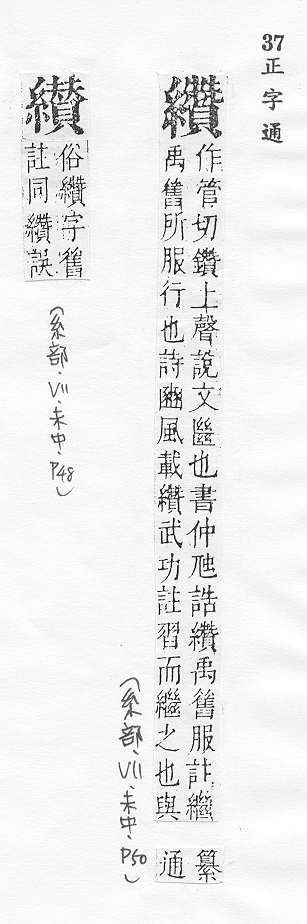 37 正字通
纘
作管切鑽上聲說文㡭也書仲虺誥纘禹舊服註繼
禹舊所服行也詩豳風載纘武功註習而繼之也與
纂
通
(糸部、VII、未中、P50)
纉
俗纘字舊
註同纘誤
(糸部、VII、未中、P48)